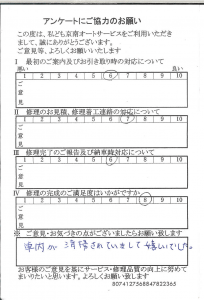 アンケートにご協力のお願い
この度は、私ども京南オートサービスをご利用いただき
まして、誠にありがとうございます。
ご意見等、よろしくお願いいたします
Ⅰ 最初のご案内及びお引き取り時の対応について
悪い 良い
1 2 3 4 5 6 7 8 9 10
ご意見
Ⅱ 修理のお見積、修理着工連絡の対応について
1 2 3 4 5 6 7 8 9 10
ご意見
Ⅲ 修理完了のご報告及び納車時対応について
1 2 3 4 5 6 7 8 9 10
ご意見
Ⅳ 修理の完成のご満足度はいかがですか
1 2 3 4 5 6 7 8 9 10
※ ご意見・お気づきの点がございましたらお願い致します
車内が清掃されていまして嬉しいでした。
お客様のご意見を基にサービス・修理品質の向上に努めて
まいりたいと思います。よろしくお願い致します。